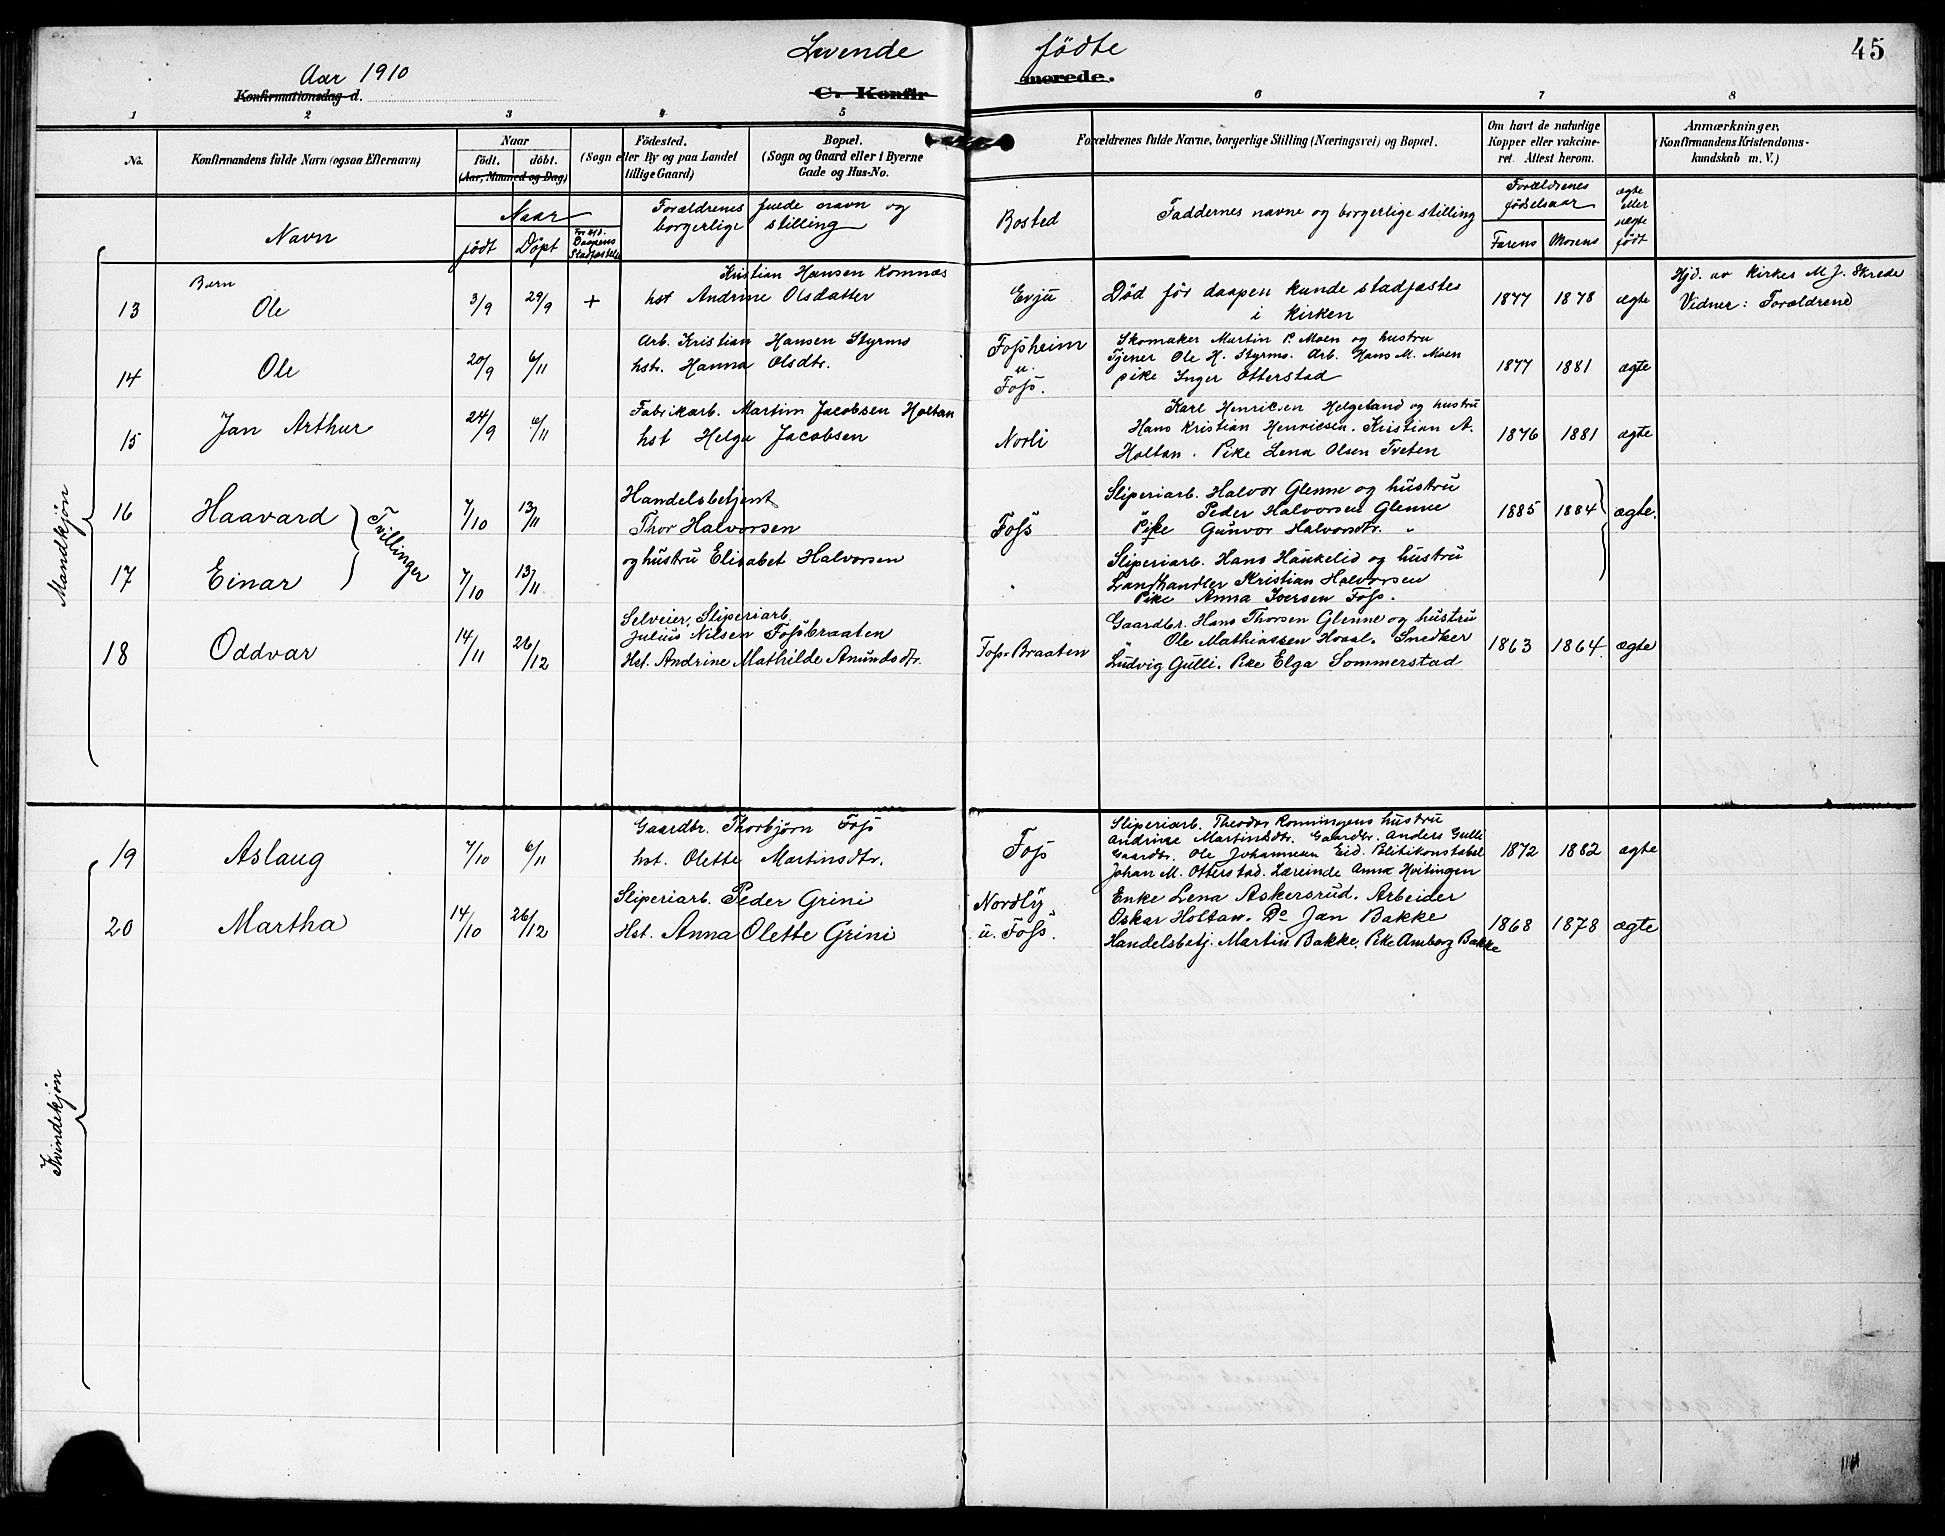 Levende fødte
45
Aar 1910
Konfirmationsdag d.
C. Konfirmerede.
1 2 3 4 5 6 7 8
No.
Konfirmandens fulde Navn (ogsaa Efternavn)
Naar
født. døbt.
(Aar, Maaned og Dag)
Fødested.
(Sogn eller By og paa Landet
tillige Gaard)
Bopæl.
(Sogn og Gaard eller i Byerne
Gade og Hus-No.
Forældrenes fulde Navne, borgerlige Stilling (Næringsvei) og Bopæl.
Om havt de naturlige
Kopper eller vakcine-
ret. Attest herom.
Anmærkninger.
Konfirmandens Kristendoms-
kundskab m. V.)
Navn
Naar
født Døpt
Daapens
Stadfæstelse
Forældrenes fulde navn og
borgerlige stilling
Bosted
Faddernes navne og borgerlige stilling
Forældrenes
fødselsaar
Farens Morens
ægte
eller
uægte
født
Mandkjøn
13
Barn
Ole
3/9 29/9 +
Kristian Hansen Komnæs
hst Andrine Olsdatter
Evju
Død før daapen kunde stadfæstes
i kirken
1877 1878 ægte
Hjd. av kirkes M J. Skrede
Vidner: Forældrene
14
Ole
20/9 6/11
Arb. Kristian Hansen Styrms
hstr. Hanna Olsdtr.
Fossheim
u.
Foss.
Skomaker Martin P. Moen og hustru
Tjener Ole H. Styrms. Arb. Hans M. Moen
pike Inger Otterstad
1877 1881 ægte
15
Jan Arthur
24/9 6/11
Fabrikarb. Martin Jacobsen Holtan
hst Helga Jacobsen
Norli
Karl Henriksen Helgeland og hustru
Hans Kristian Henriksen. Kristian A.
Holtan. Pike Lena Olsen Tveten
1876 1881 ægte
16
Haavard
Tvillinger
7/10 13/11
Handelsbetjent
Thor Halvorsen
Foss
Sliperiarb. Halvor Glenne og hustru
Peder Halvorsen Glenne
Pike Gunvor Halvorsdtr. "
1885 1884 ægte.
17
Einar
7/10 13/11
og hustru Elisabet Halvorsen
Sliperiarb. Hans Hankelid og hustru
Landhandler Kristian Halvorsen
Pike Anna Iversen Foss.
18
Oddvar
14/11 26/12
Selveier, Sliperiarb.
Julius Nilsen Fossbraaten
Hst. Andrine Mathilde Anundsdtr.
Foss-Braaten
Gaardbr. Hans Thorsen Glenne og hustru
Ole Mathiassen Hoaal. Snedker
Ludvig Gulli. Pike Elga Sommerstad
1863 1864. ægte
Kvindekjøn
19
Aslaug
7/10 6/11
Gaardbr. Thorbjørn Foss
hst. Olette Martinsdtr.
Foss
Sliperiarb. Theodor Ronningens hustru
Andrine Martinsdtr. Gaardbr. Anders Gulli
Gaardbr. Ole Johannesen Eid. Politikonstabel
Johan M. Otterstad. Lærerinde Anna Hvitingen
1872 1882 ægte
20
Martha
14/10 26/12
Sliperiarb. Peder Grini
Hst. Anna Olette Grini
Nordly
u. Foss.
Enke Lena Askersrud. Arbeider
Oskar Holtan. Do Jan Bakke
Handelsbetj. Martin Bakke. Pike Amborg Bakke
1868 1878 ægte